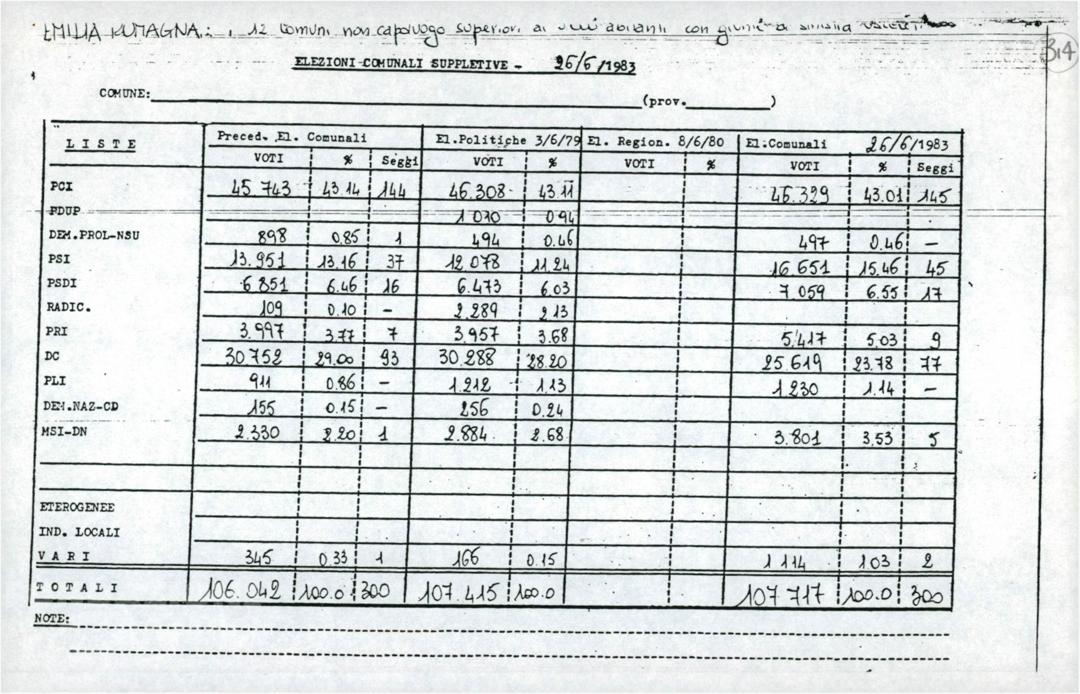 EMILIA ROMAGNA: 12 Comuni non capoluogo superiori ai abitanti con giunte di sinistra
314
ELEZIONI COMUNALI SUPPLETIVE - 26/6/1983
COMUNE: (prov. )
LISTE Preced. El. Comunali El.Politiche 3/6/79 El. Region. 8/6/80 El.Comunali 26/6/1983
VOTI % Seggi VOTI % VOTI % VOTI % Seggi
PCI 45.743 43.14 144 46.308 43.11 46.329 43.01 145
PDUP 1.010 0.94
DEM.PROL-NSU 898 0.85 1 494 0.46 497 0.46 -
PSI 13.951 13.16 37 12.078 11.24 16.651 15.46 45
PSDI 6.851 6.46 16 6.473 6.03 7.059 6.55 17
RADIC. 109 0.10 - 2.289 2.13
PRI 3.997 3.77 7 3.957 3.68 5.417 5.03 9
DC 30.752 29.00 93 30.288 28.20 25.619 23.78 77
PLI 911 0.86 - 1.212 1.13 1.230 1.14 -
DEM.NAZ-CD 155 0.15 - 256 0.24
MSI-DN 2.330 2.20 1 2.884 2.68 3.801 3.53 5
ETEROGENEE
IND. LOCALI
VARI 345 0.33 1 166 0.15 1.114 1.03 2
TOTALI 106.042 100.0 300 107.415 100.0 107.717 100.0 300
NOTE: